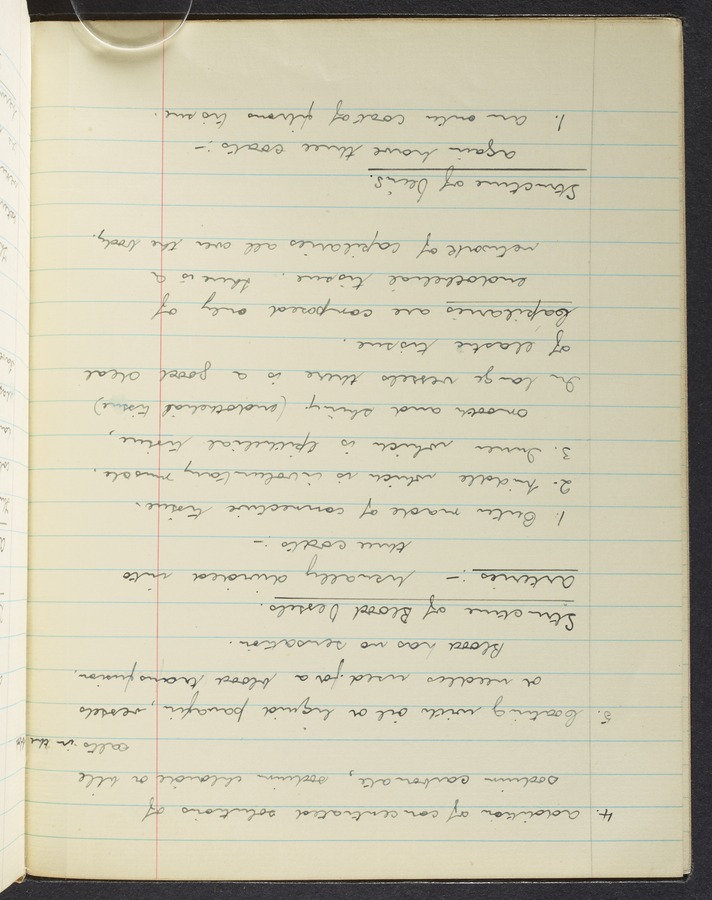 4. Addition of concentrated solutions of
sodium carbonate, sodium chloride or bile
salts in the
5. Coating with oil or liquid parafin, vessels
or needles used for a blood transfusion.
Blood has no sensation.
Structure of Blood Vessels.
Arteries :- Usually divided into
three coats :-
1. Outer made of connective tissue.
2. Middle which is involuntary muscle.
3. Inner which is Epithelial tissue,
smooth and shiny (endothelial tissue)
In large vessels there is a good deal
of elastic tissue.
Capilaries are composed only of
endothelial tissue. There is a
network of capilaries all over the body.
Structure of Veins.
again have three coats :-
1. An outer coat of fibrous tissue.